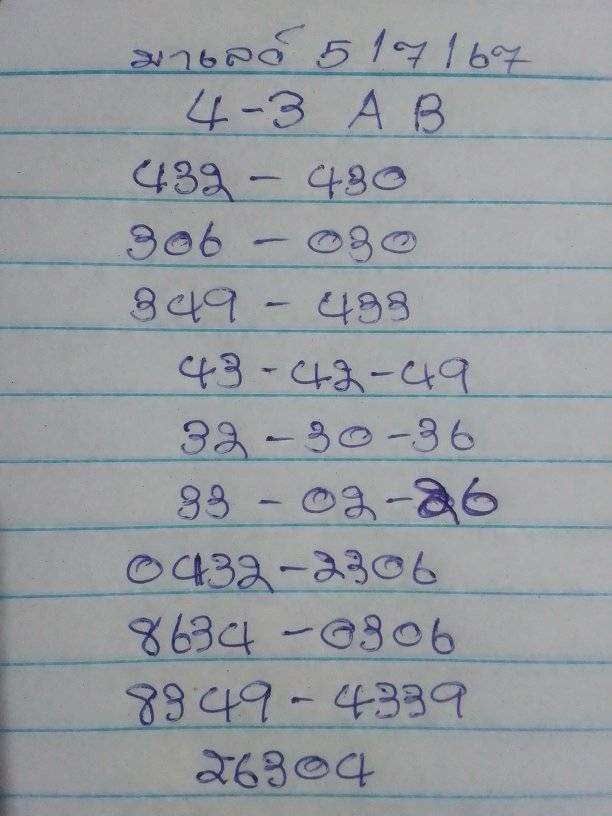 มาเลย์ 5/7/67
4-3 A B
432 - 430
306 - 030
349 - 433
43 - 42 - 49
32 - 30 - 36
33 - 02 - 26
0432 - 2306
8634 - 0306
8349 - 4339
26304